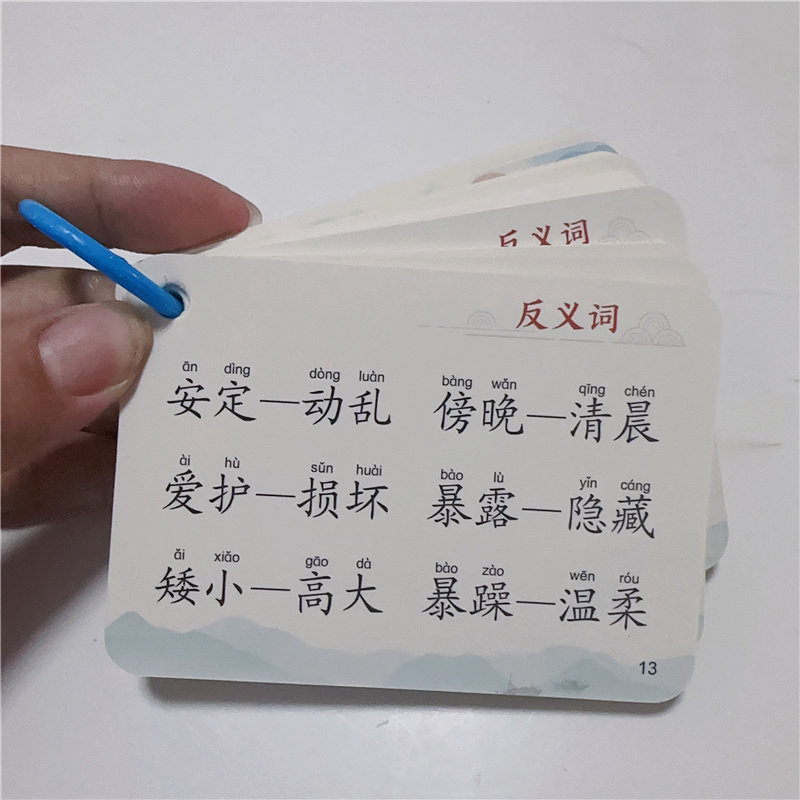 反义词
反义词
ān dìng dòng luàn bàng wǎn qīng chén
安定—动乱 傍晚—清晨
ài hù sǔn huài bào lù yǐn cáng
爱护—损坏 暴露—隐藏
ǎi xiǎo gāo dà bào zào wēn róu
矮小—高大 暴躁—温柔
13